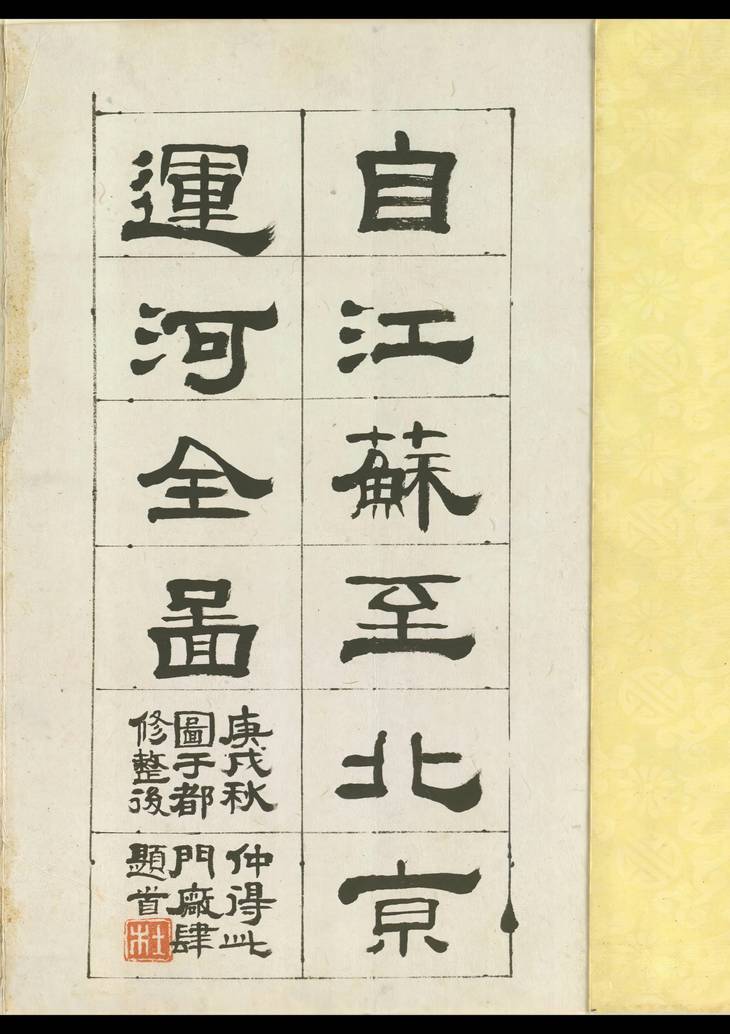 自江蘇至北亰
運河全啚
庚戌秋仲得此
圖于都門廠肆
修整後題首
杜